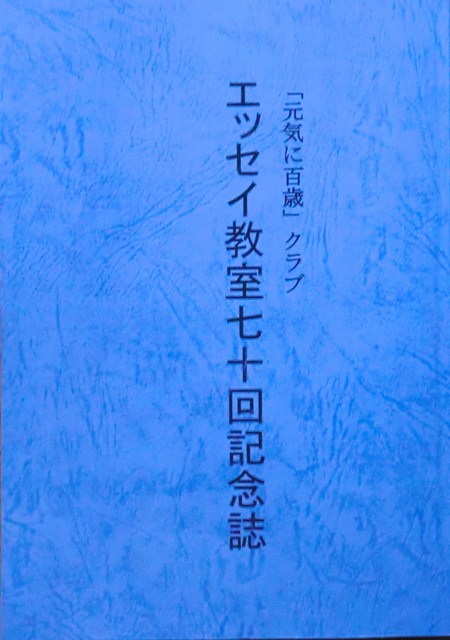 「元気に百歳」クラブ
エッセイ教室七十回記念誌